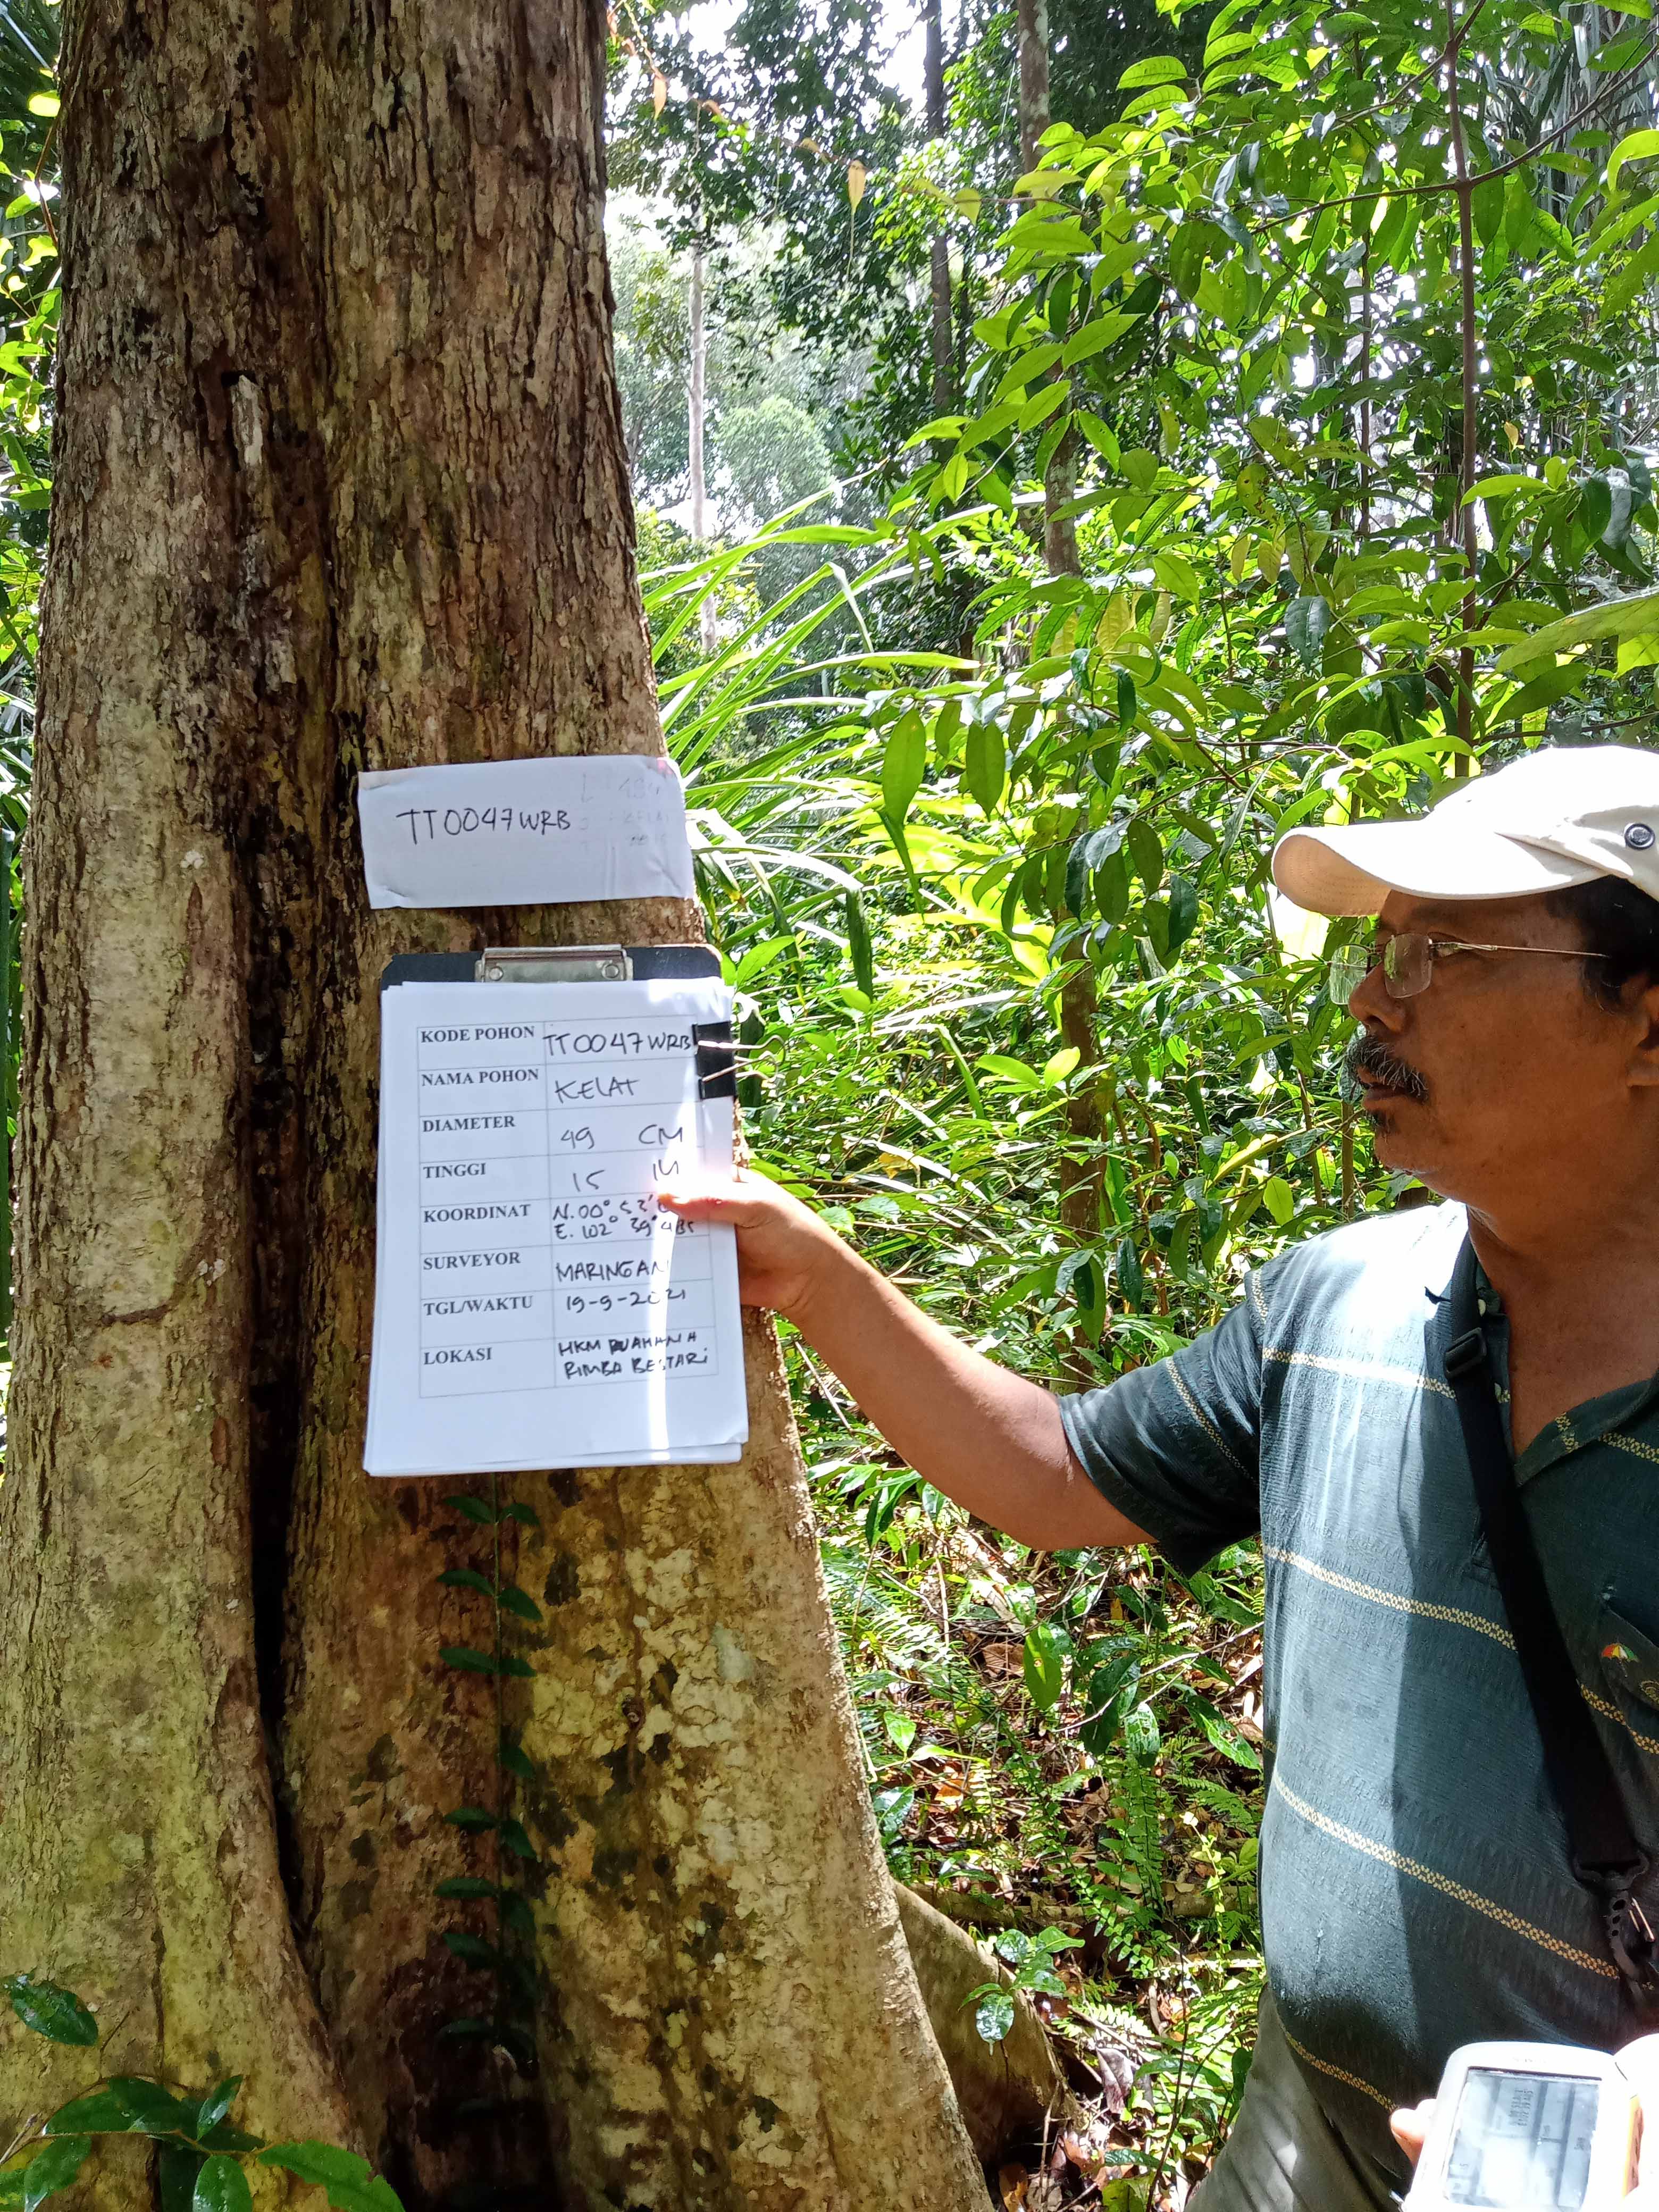 TT0047WRB
KODE POHON TT0047WRB
NAMA POHON KELAT
DIAMETER 49 CM
TINGGI 15 M
KOORDINAT N. 00° 52'
E. 102° 39'
SURVEYOR MARINGAN
TGL/WAKTU 19-9-2021
LOKASI HKM
RIMBA BESTARI